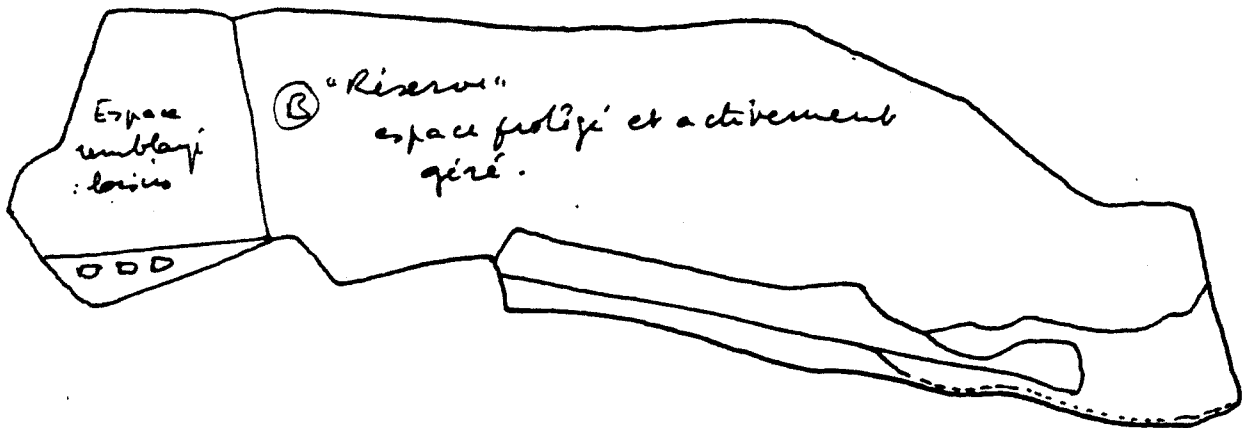 Espace
remblayé
: loisirs
B "Réserve"
espace protégé et activement
géré.